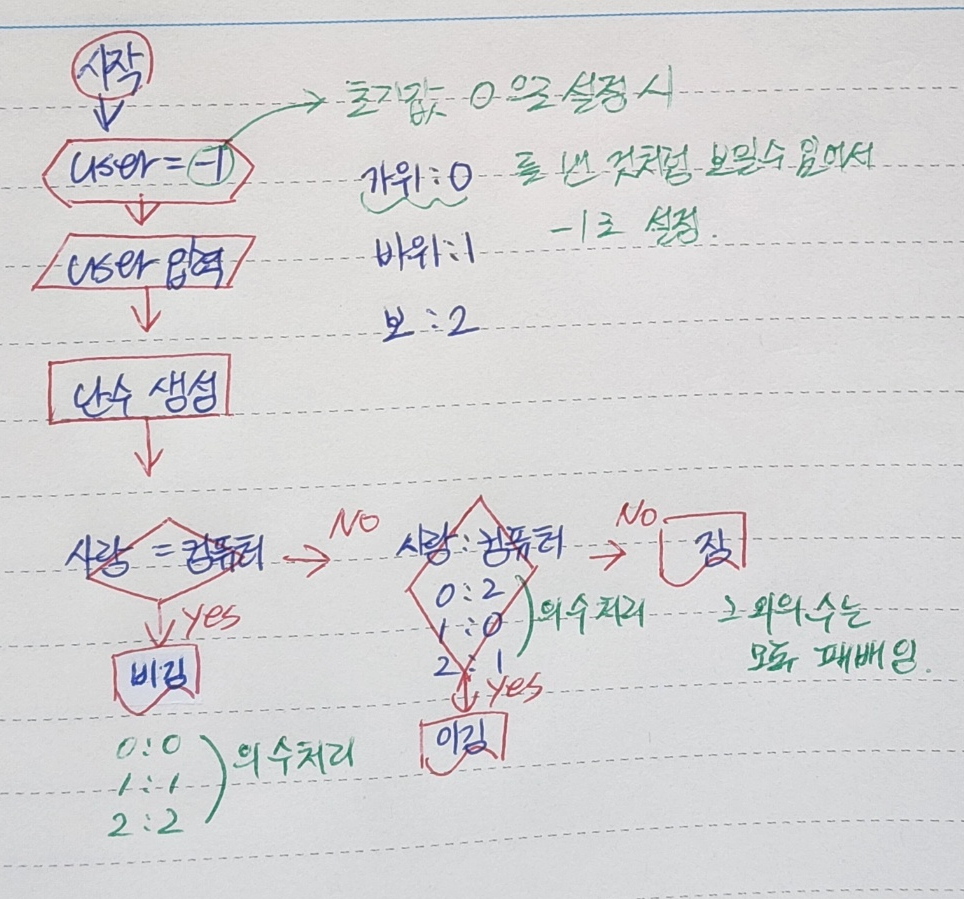 시작
user = -1
초기값 0 으로 설정 시
가위 : 0 를 낸 것처럼 보일수 있어서
-1로 설정.
바위 : 1
보 : 2
user 입력
난수 생성
사람 = 컴퓨터
NO
사람 : 컴퓨터
0 : 2
1 : 0
2 : 1
의 수처리
No
짐
그 외의 수는
모두 패배임.
yes
비김
yes
이김
0 : 0
1 : 1
2 : 2
의 수처리